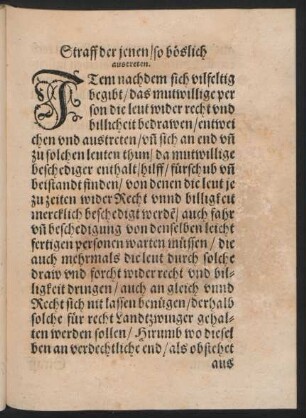 Straff der jenen / so böslich
austreten.
ITem nachdem sich vilfeltig
begibt / das mutwillige per
son die leut wider recht vnd
billicheit bedrawen / entwei
chen vnd austreten / vñ sich an end vñ
zu solchen leuten thun / da mutwillige
beschediger enthalt / hilff / fürschub vñ
beistandt finden / von denen die leut je
zu zeiten wider Recht vnnd billigkeit
mercklich beschedigt werdẽ / auch fahr
vñ beschedigung von denselben leicht
fertigen personen warten müssen / die
auch mehrmals die leut durch solche
draw vnd forcht wider recht vnd bil-
ligkeit dringen / auch an gleich vnnd
Recht sich nit lassen benügen / derhalb
solche für recht Landtzwinger gehal-
ten werden sollen / Hirumb wo diesel
ben an verdechtliche end / als obstehet
aus